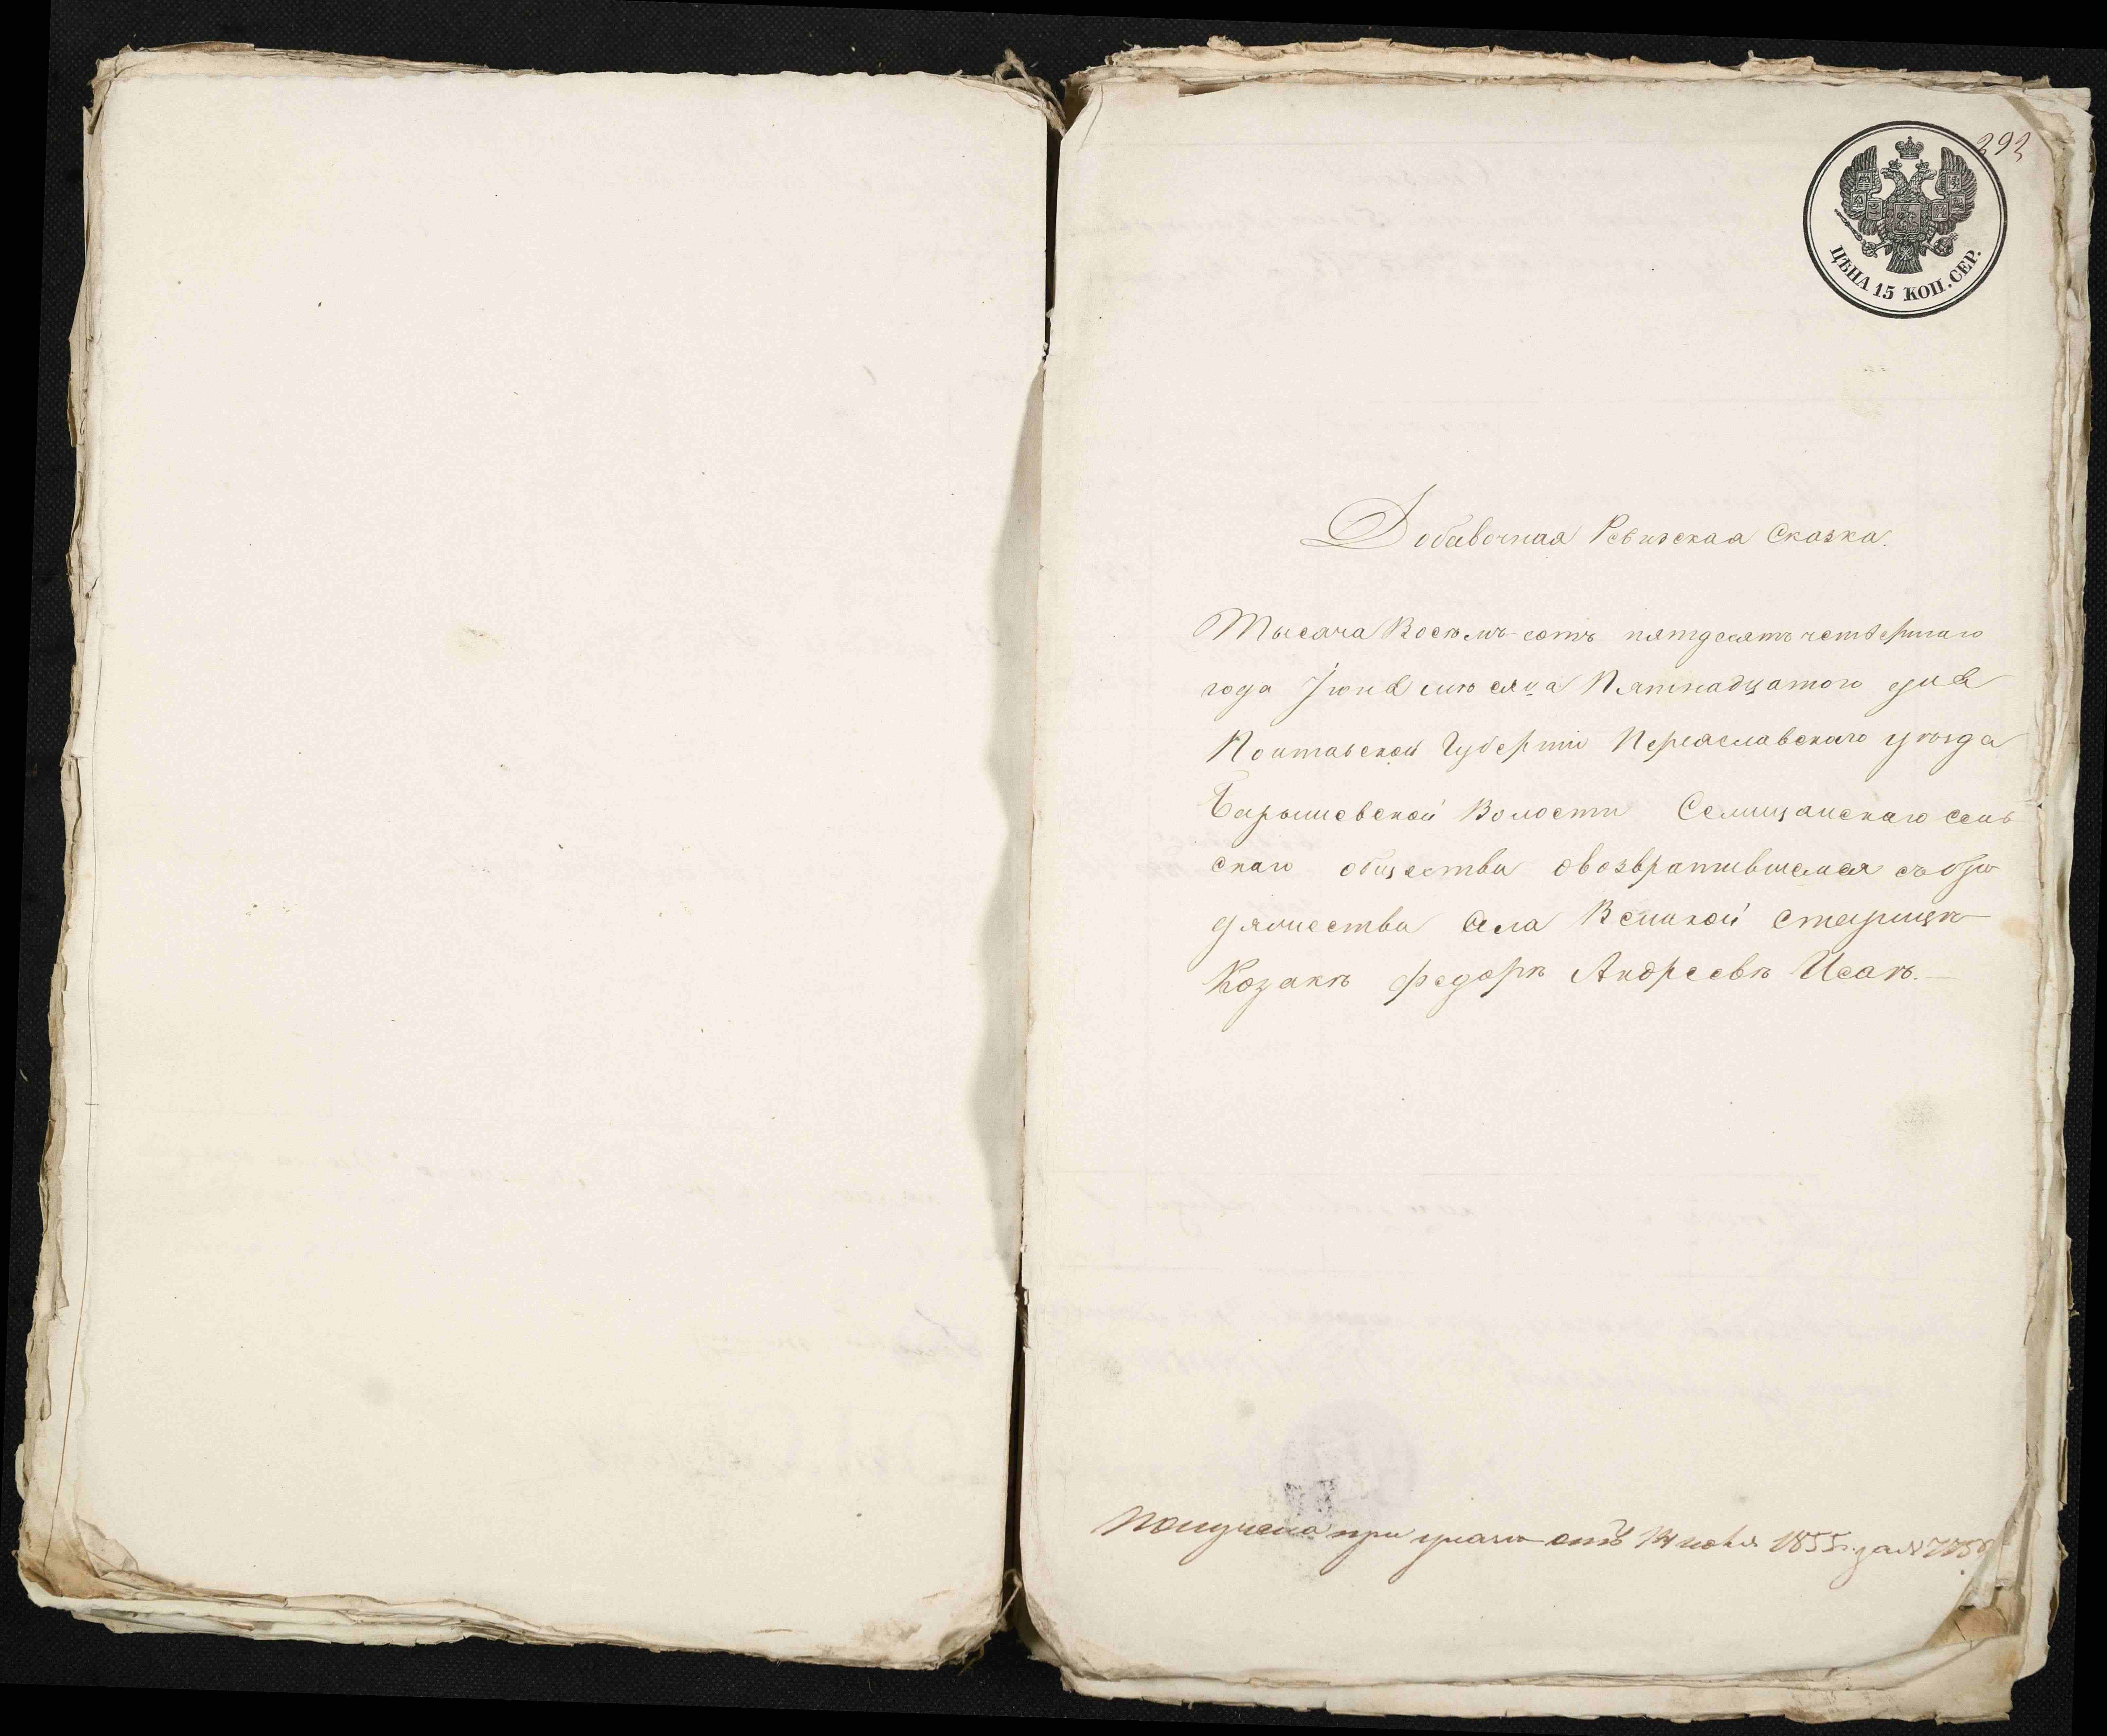 292
ЦѢНА 15 КОП. СЕР.
Добавочная Ревизская Сказка.
Тысяча Восемь-сотъ пятдесятъ четвертаго
года Іюня мѣсяца Пятнадцатого дня
Полтавской Губерніи Переяславскаго уѣзда
Барышевской Волости Селищанскаго сель
скаго общества овозвратившемся съ бро
дяжества села Великой Старицы
Козакѣ Федорѣ Андреевѣ Исаѣ.
Получена при отъ 14 1855 г. за №